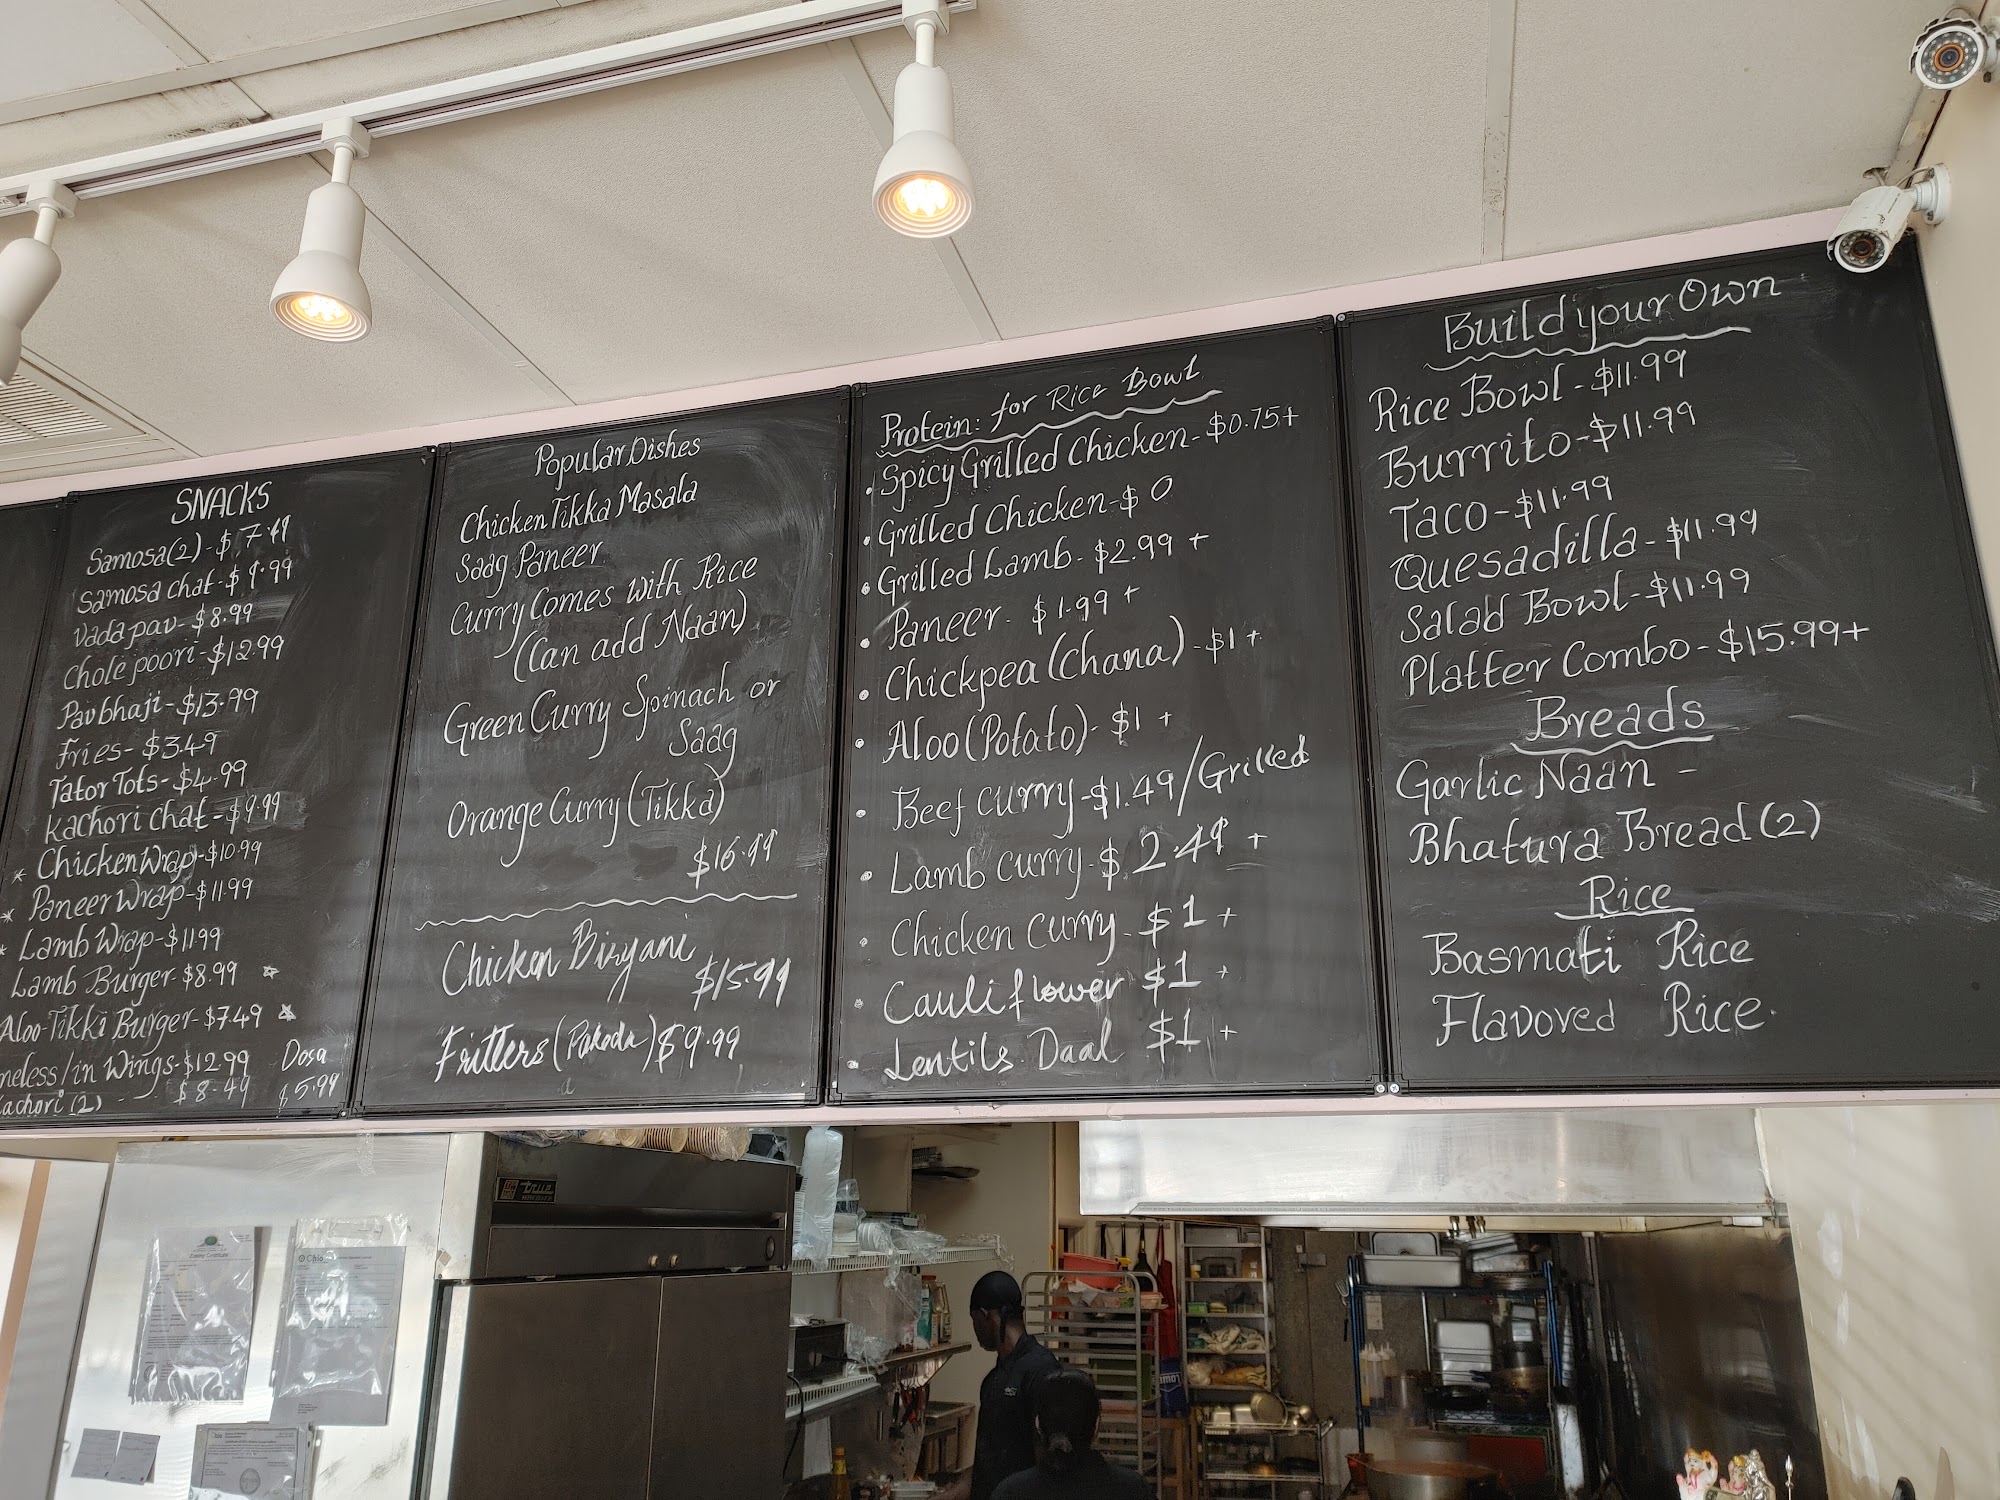 SNACKS
Samosa(2)-$7.49
Samosa chat-$9.99
Vada pav-$8.99
Chole poori-$12.99
Pavbhaji-$13.99
Fries-$3.49
Tator Tots-$4.99
Kachori chat-$9.99
* Chicken Wrap-$10.99
* Paneer Wrap-$11.99
* Lamb Wrap-$11.99
Lamb Burger-$8.99 ☆
Aloo-Tikki Burger-$7.49 ☆
neless/in Wings-$12.99 Dosa
achori (2) - $8.49 $5.99
Popular Dishes
Chicken Tikka Masala
Saag Paneer
Curry Comes with Rice
(Can add Naan)
Green Curry Spinach or
Saag
Orange Curry (Tikka)
$16.99
Chicken Biryani
$15.99
Fritters (Pakoda) $9.99
Protein: for Rice Bowl
• Spicy Grilled Chicken-$0.75+
• Grilled Chicken-$0
• Grilled Lamb-$2.99+
• Paneer-$1.99+
• Chickpea (Chana)-$1+
• Aloo (Potato)-$1+
• Beef Curry-$1.49/Grilled
• Lamb Curry-$2.49+
• Chicken Curry-$1+
• Cauliflower $1+
• Lentils Daal $1+
Build your Own
Rice Bowl-$11.99
Burrito-$11.99
Taco-$11.99
Quesadilla-$11.99
Salad Bowl-$11.99
Platter Combo-$15.99+
Breads
Garlic Naan -
Bhatura Bread (2)
Rice
Basmati Rice
Flavored Rice.
true
Ohio